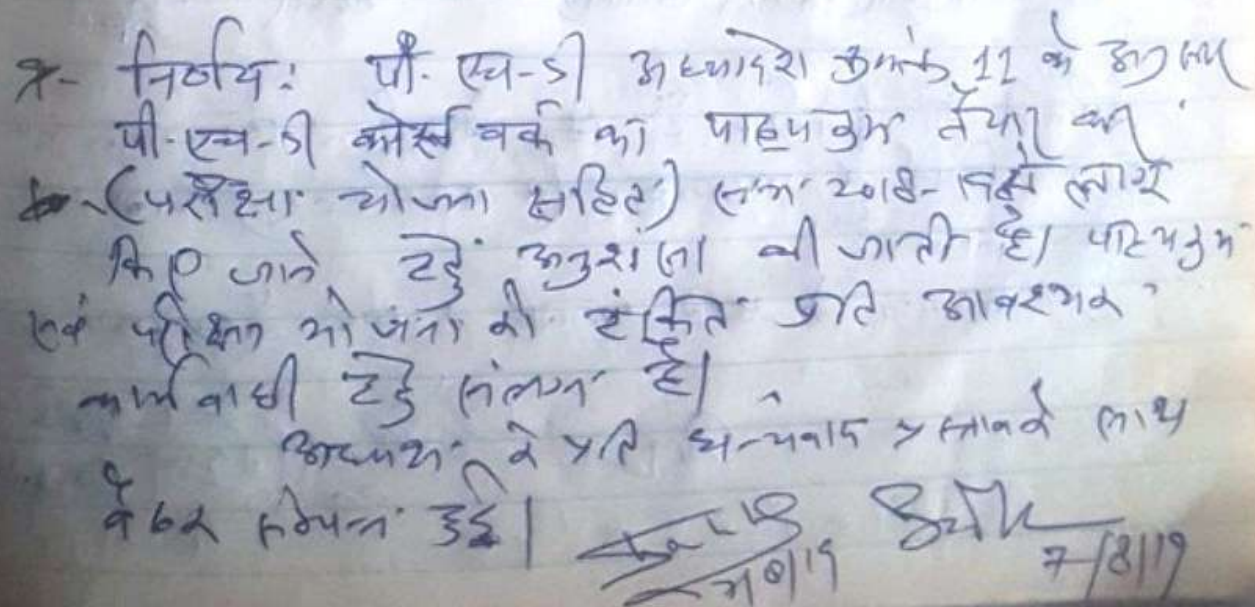 निर्णय: पी. एच-डी अध्यादेश क्रमांक 11 के अनुरूप
पी.एच-डी कोर्स वर्क का पाठ्यक्रम तैयार कर
(परीक्षा योजना सहित) सत्र 2018-19 से लागू
किए जाने हेतु अनुशंसा की जाती है। पाठ्यक्रम
एवं परीक्षा योजना की टंकित प्रति आवश्यक
कार्यवाही हेतु संलग्न है।
अध्यक्ष के प्रति धन्यवाद प्रस्ताव के साथ
बैठक संपन्न हुई।
7/8/19